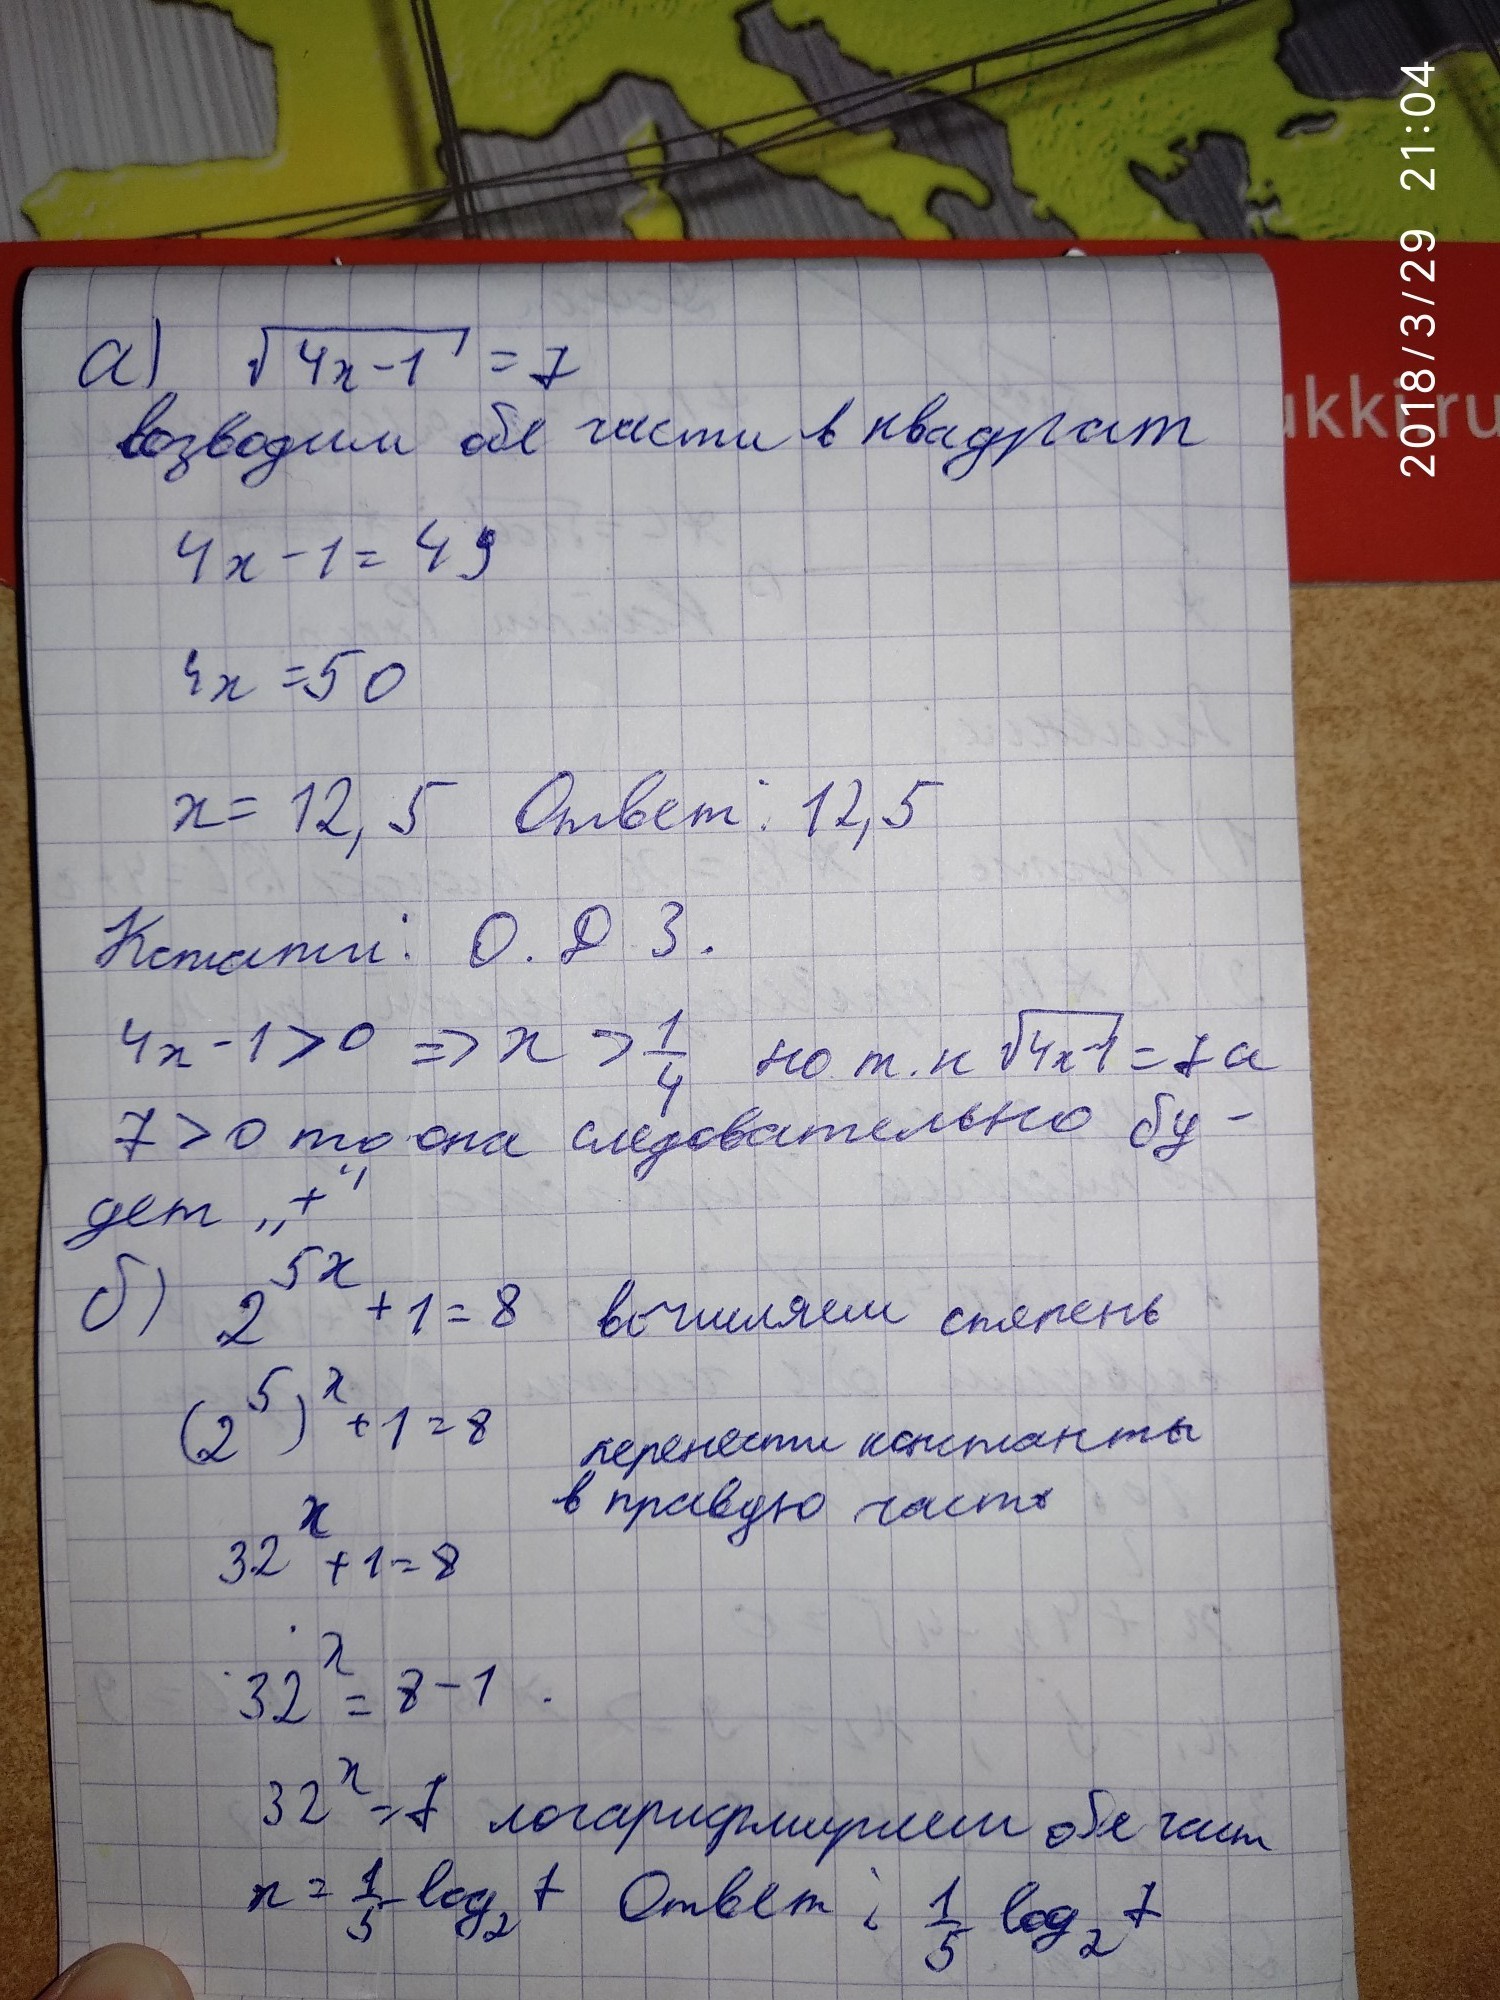 2018/3/29 21:04
ukki.ru
а) √(4x-1) = 7
возводим обе части в квадрат
4x-1=49
4x=50
x=12,5 Ответ: 12,5
Кстати: О.Д З.
4x-1>0 => x > 1/4 но т.к √(4x-1) = 7 а
7>0 то она следовательно бу-
дет „+"
б) 2^5x +1=8 вычисляем степень
(2^5)^x +1=8 перенести константы
в правую часть
32^x +1=8
32^x = 8-1
32^x = 7 логарифмируем обе част
x = 1/5 log₂ 7 Ответ: 1/5 log₂ 7